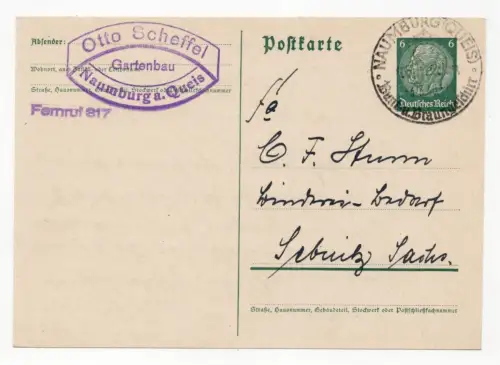 Absender:
Otto Scheffel
Gartenbau
Naumburg a. Queis
Wohnort, auch Zustell- oder Leitpostamt
Straße, Hausnummer, Gebäudeteil, Stockwerk oder Postschließfachnummer
Fernruf 217
Postkarte
6 6
Deutsches Reich
NAUMBURG (QUEIS)
Fa
C. F. Sturm
Binderei-Bedarf
Sebnitz Sachs.
Straße, Hausnummer, Gebäudeteil, Stockwerk oder Postschließfachnummer